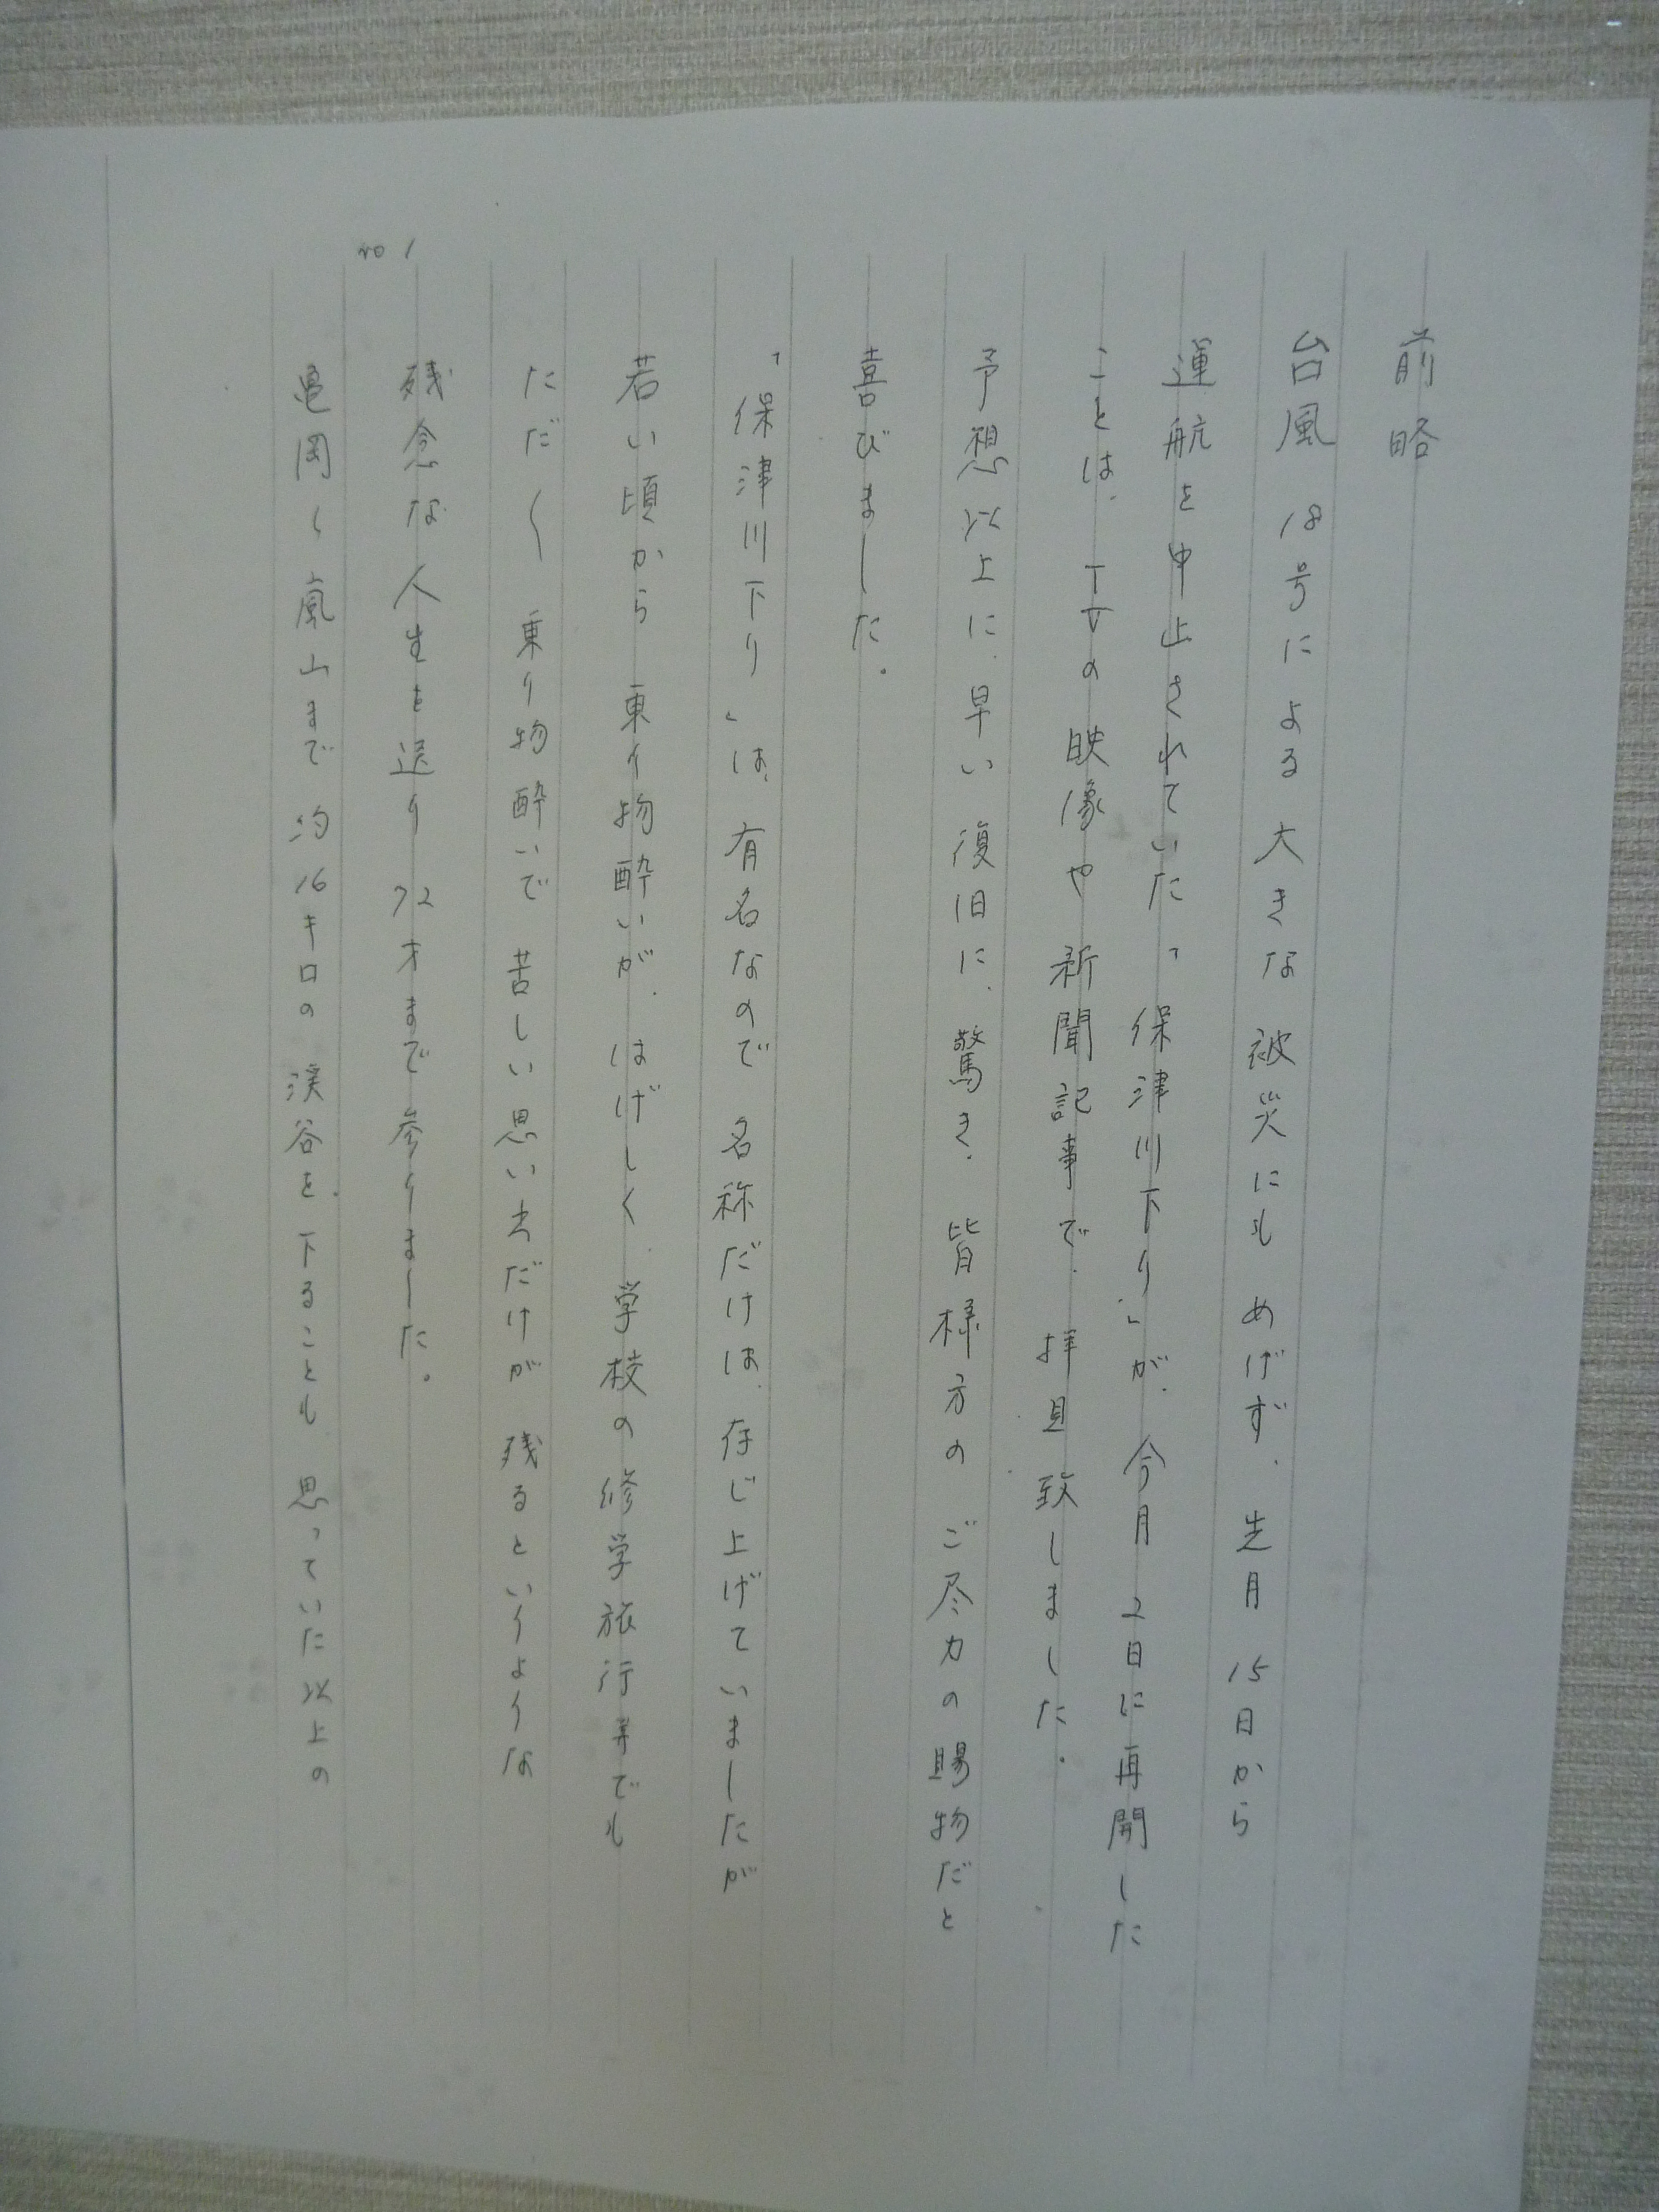 前略
台風 18号による 大きな 被災にも めげず、先月 15日から
運航を中止されていた「保津川下り」が、今月 2日に再開した
ことは、TVの映像や 新聞記事で、拝見致しました。
予想以上に、早い復旧に、驚き、皆様方の ご尽力の賜物だと
喜びました。
「保津川下り」は、有名なので 名称だけは、存じ上げていましたが
若い頃から 乗り物酔いが、はげしく、学校の修学旅行等でも
ただ〱 乗り物酔いで 苦しい思い出だけが 残るというような
残念な人生を送り 72才まで参りました。
亀岡〜嵐山まで 約16キロの 渓谷を、下ることも 思っていた以上の
no 1